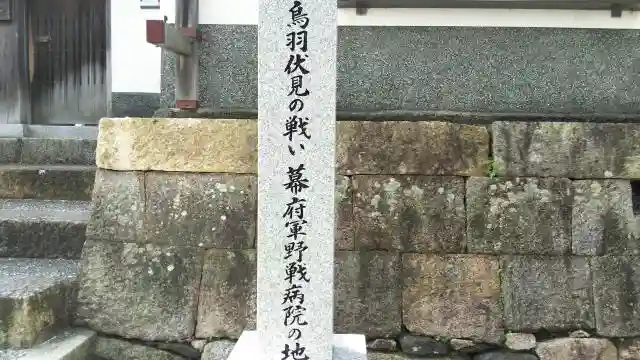 鳥羽伏見の戦い 幕府軍野戦病院の地